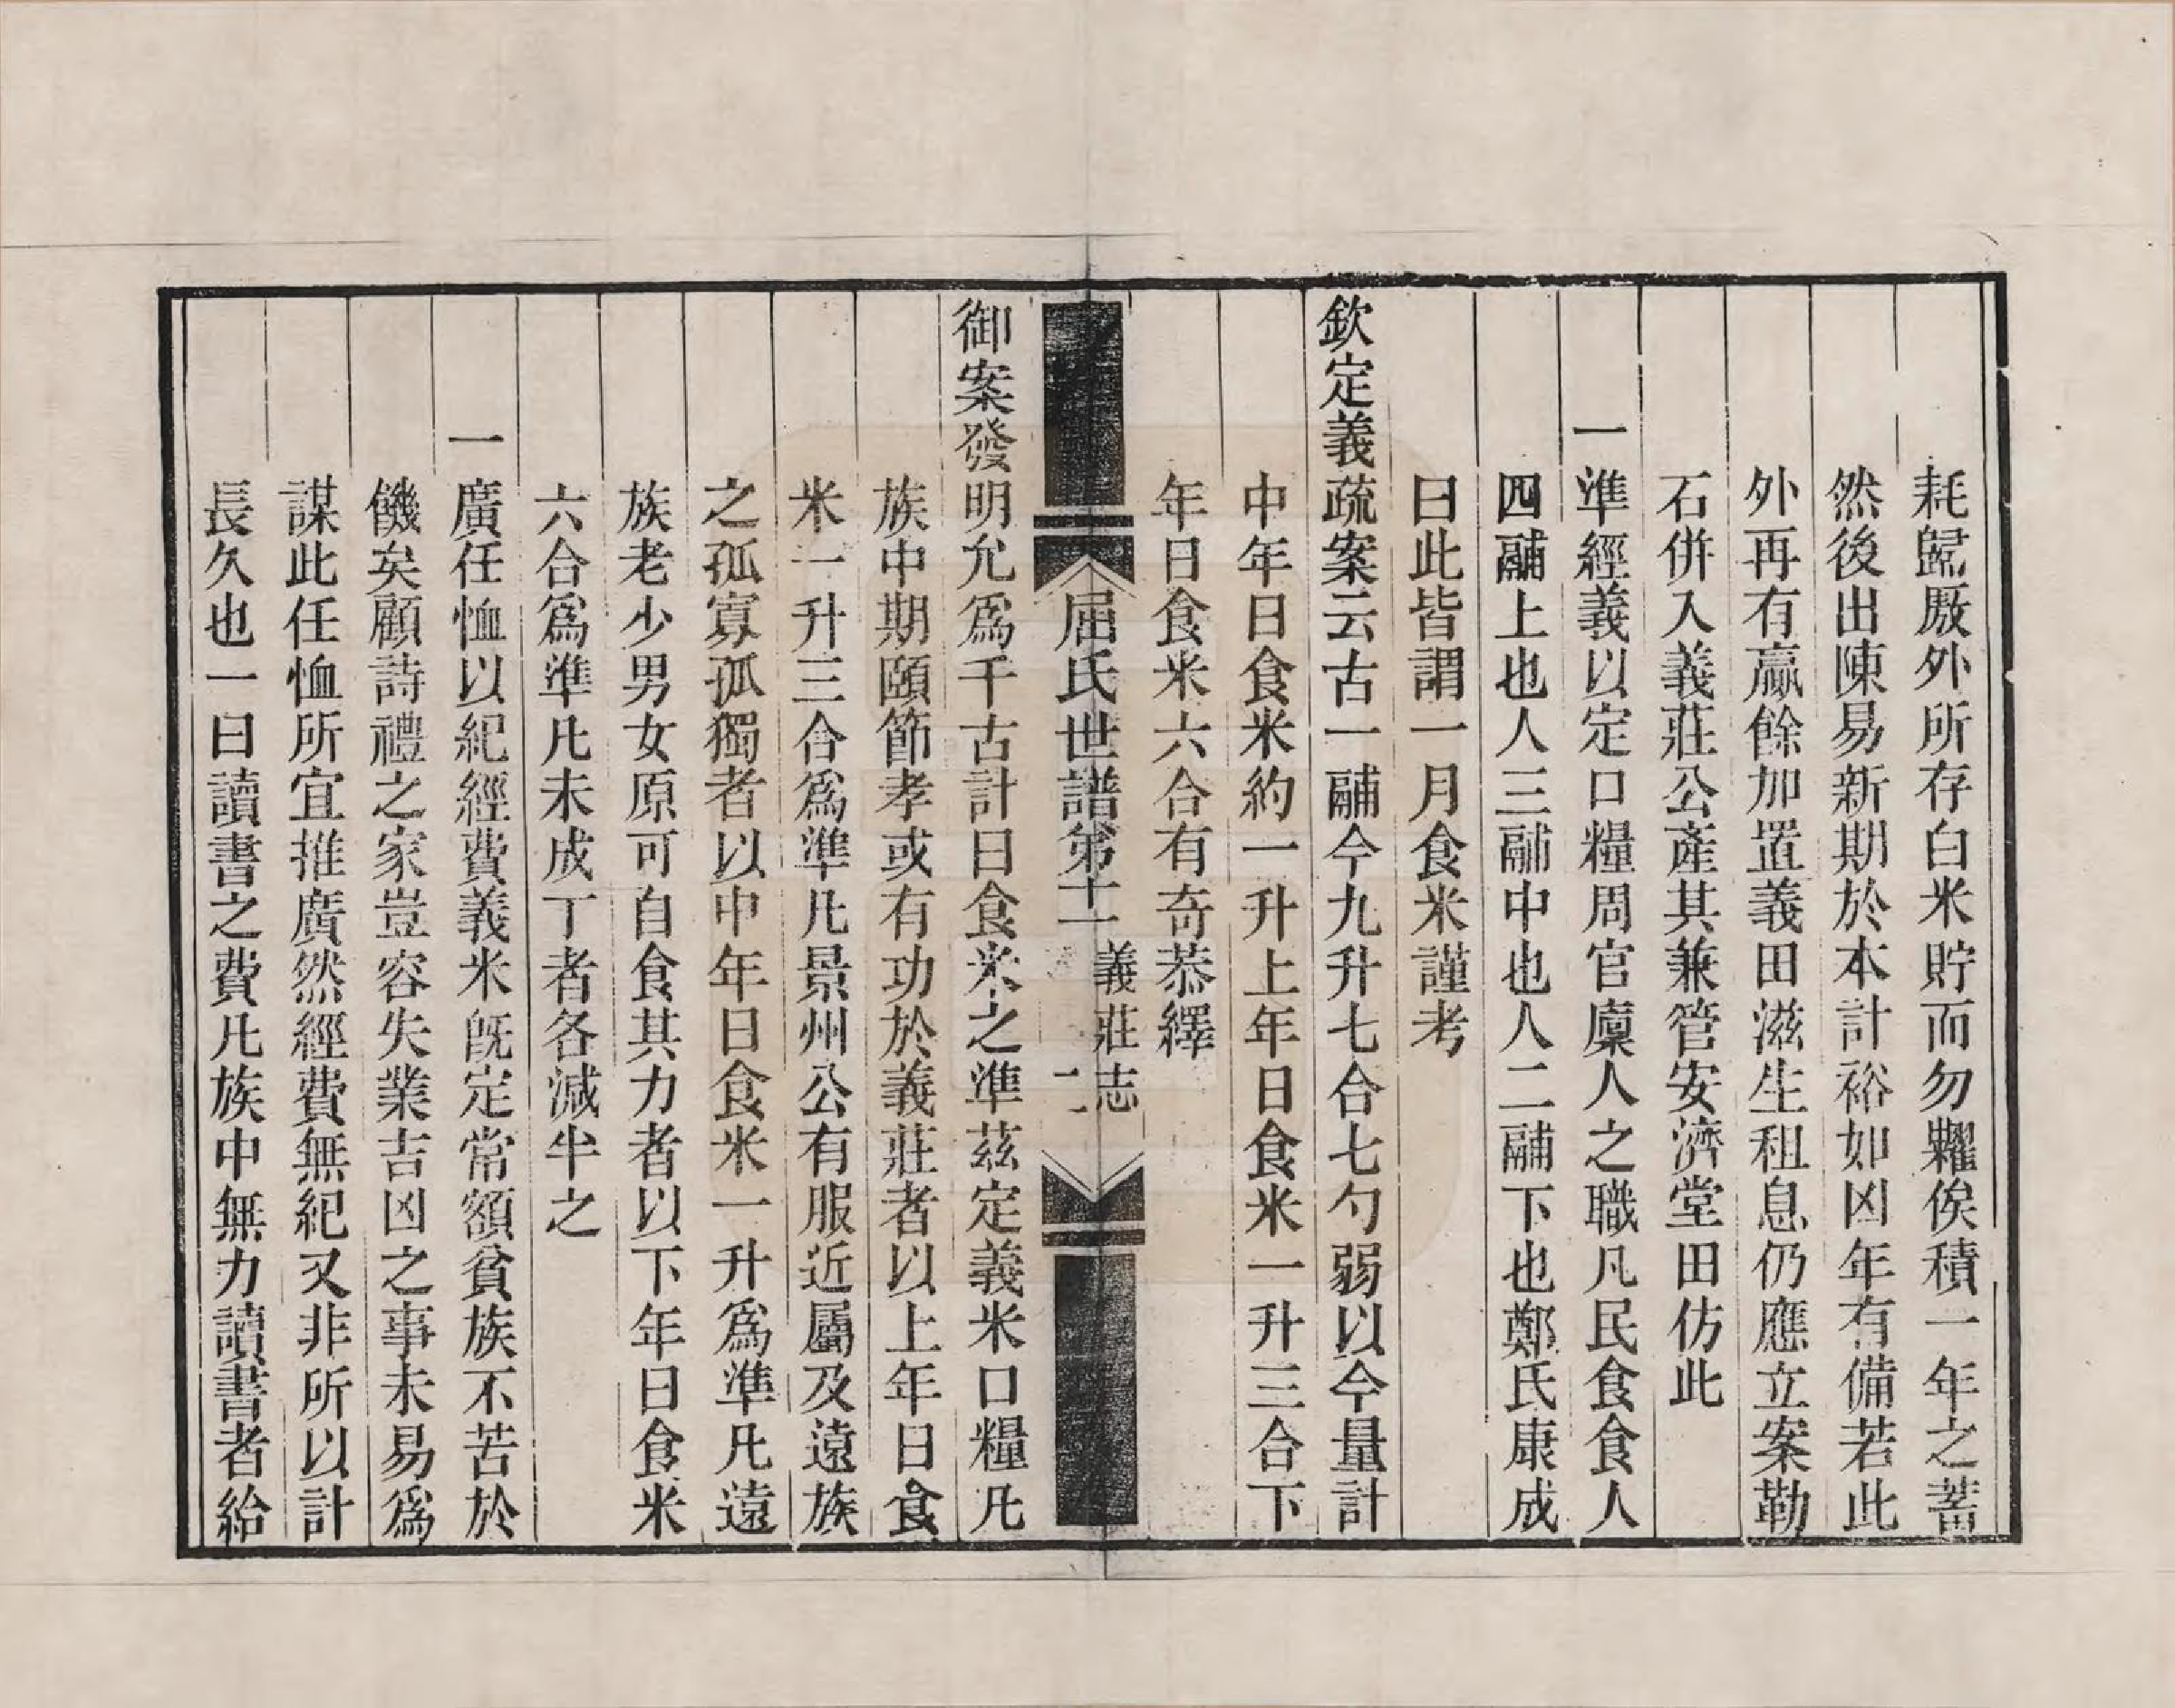 耗歸廒外所存白米貯而勿糶俟積一年之蓄
然後出陳易新期於本計裕如凶年有備若此
外再有贏餘加置義田滋生租息仍應立案勒
石併入義莊公產其兼管安濟堂田仿此
一準經義以定口糧周官廩人之職凡民食食人
四鬴上也人三鬴中也人二鬴下也鄭氏康成
曰此皆謂一月食米謹考
欽定義疏案云古一鬴今九升七合七勺弱以今量計
中年日食米約一升上年日食米一升三合下
年日食米六合有奇恭繹
屈氏世譜第十一
義莊志
二
御案發明允爲千古計日食米之準茲定義米口糧凡
族中期頤節孝或有功於義莊者以上年日食
米一升三合爲準凡景州公有服近屬及遠族
之孤寡孤獨者以中年日食米一升爲準凡遠
族老少男女原可自食其力者以下年日食米
六合爲準凡未成丁者各減半之
一廣任恤以紀經費義米既定常額貧族不苦於
饑矣顧詩禮之家豈容失業吉凶之事未易爲
謀此任恤所宜推廣然經費無紀又非所以計
長久也一曰讀書之費凡族中無力讀書者給